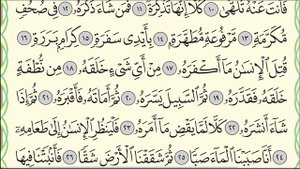 فَأَنتَ عَنْهُ تَلَهَّىٰ ١٠ كَلَّا إِنَّهَا تَذْكِرَةٌ ١١ فَمَن شَاءَ ذَكَرَهُۥ ١٢ فِى صُحُفٍ
مُّكَرَّمَةٍ ١٣ مَّرْفُوعَةٍ مُّطَهَّرَةٍۭ ١٤ بِأَيْدِى سَفَرَةٍ ١٥ كِرَامٍۭ بَرَرَةٍ ١٦
قُتِلَ ٱلْإِنسَٰنُ مَآ أَكْفَرَهُۥ ١٧ مِنْ أَىِّ شَىْءٍ خَلَقَهُۥ ١٨ مِن نُّطْفَةٍ
خَلَقَهُۥ فَقَدَّرَهُۥ ١٩ ثُمَّ ٱلسَّبِيلَ يَسَّرَهُۥ ٢٠ ثُمَّ أَمَاتَهُۥ فَأَقْبَرَهُۥ ٢١ ثُمَّ إِذَا
شَآءَ أَنشَرَهُۥ ٢٢ كَلَّا لَمَّا يَقْضِ مَآ أَمَرَهُۥ ٢٣ فَلْيَنظُرِ ٱلْإِنسَٰنُ إِلَىٰ طَعَامِهِۦٓ
٢٤ أَنَّا صَبَبْنَا ٱلْمَآءَ صَبًّا ٢٥ ثُمَّ شَقَقْنَا ٱلْأَرْضَ شَقًّا ٢٦ فَأَنۢبَتْنَا فِيهَا